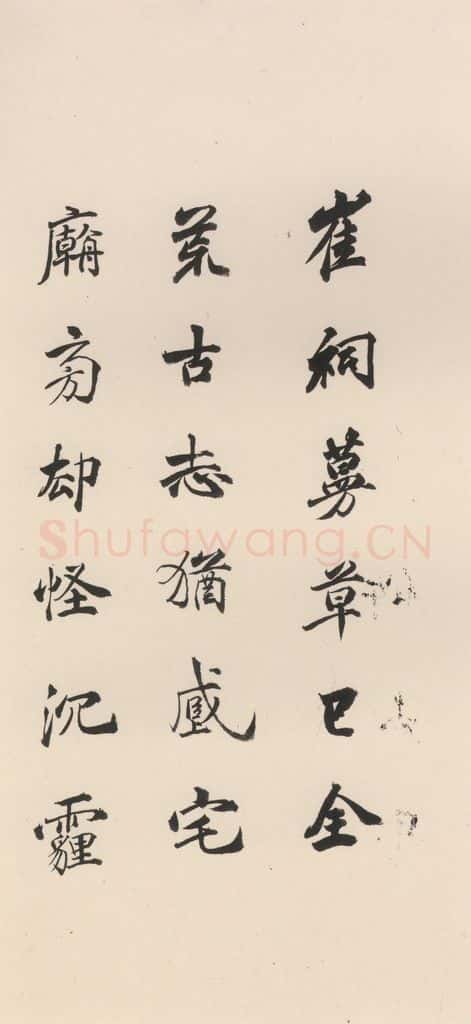 崔祠蔓草已全
荒古志猶臧宅
廟旁却怪沉霾
Shufawang.CN